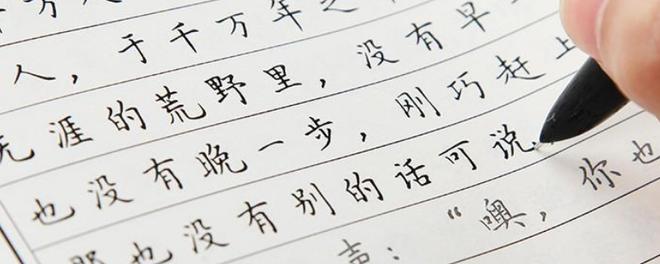 万人
人，于千万年之
无涯的荒野里，没有早
也没有晚一步，刚巧赶上
那也没有别的话可说
声：“噢，你也